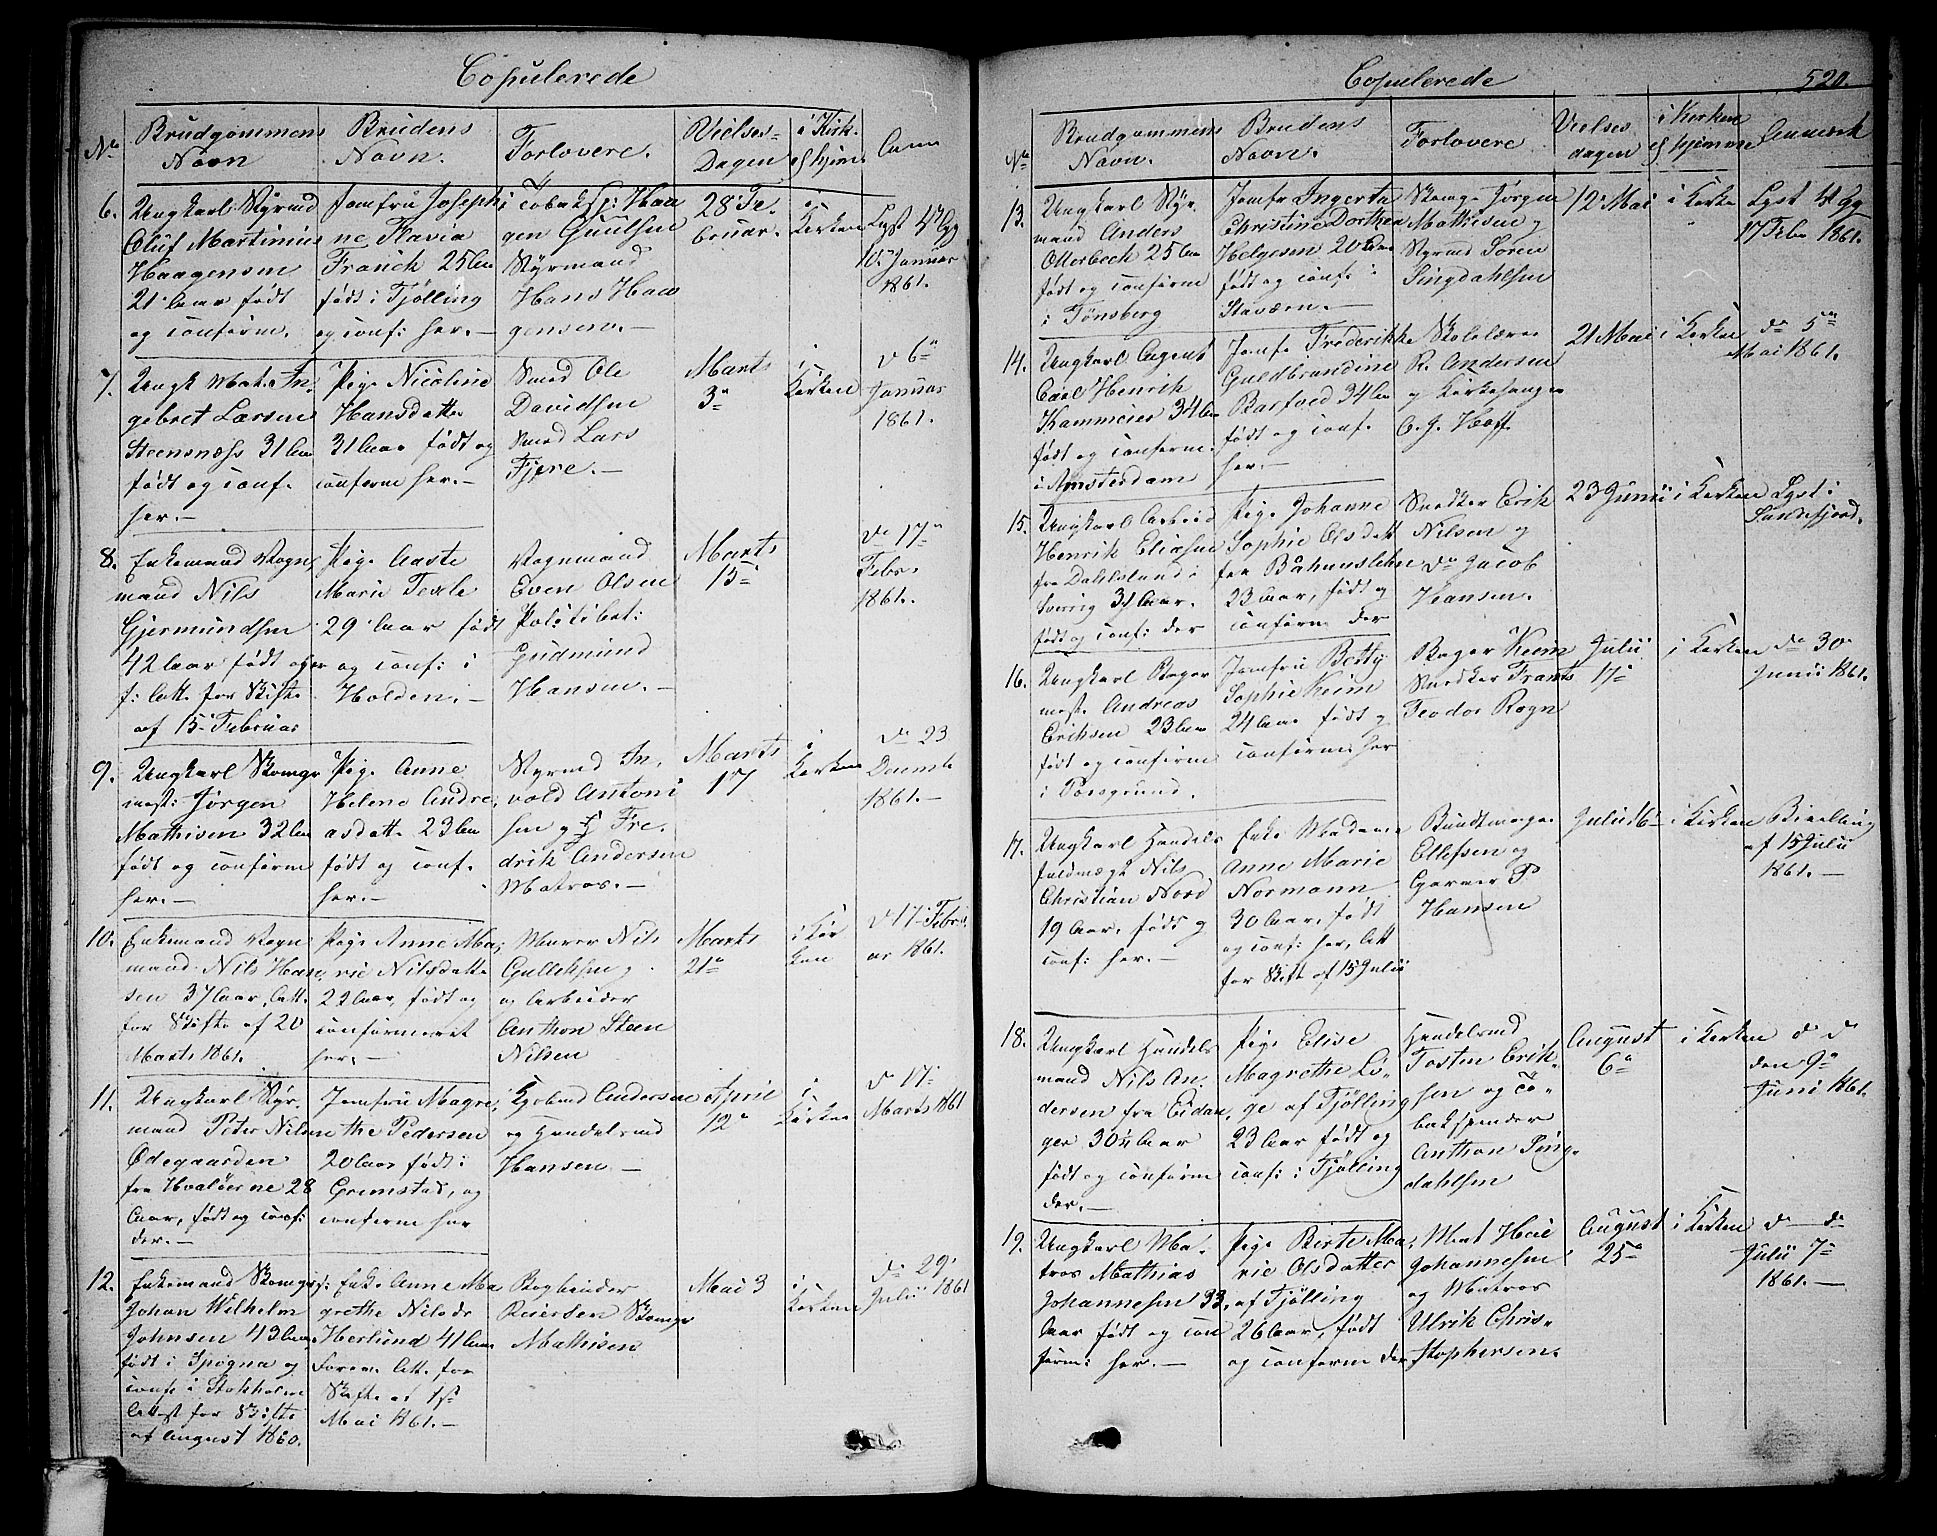 Copulerede
No
Brudgommens
Navn
Brudens
Navn.
Forlovere.
Vielses-
Dagen
i Kirk.
el hjem.
Anm
6. Ungkarl Styrmd
Oluf Martinius
Haagensen
21 Aar født
og conform.
Jomfru Josephi
ne Flavia
Franck 25 Aar
født i Tjølling
og conf: her.—
Tobaksp: Haa
gen Guulsen
Styrmand
Hans Haa
gensen.—
28 Fe
bruar.
i
Kirken
Lyst 4de Gg
10. Januar
1861.
7. Ungk Mat. In
gebret Larsen
Steensnæss 31 Aar
født og conf.
her.—
Pige Nicoline
Hansdatter
31 Aar født og
conform her.—
Smed Ole
Davidsen
Smed Lars
Fjære.—
Marts
3
i
Kirken
do 6
Januar
1861.
8. Enkemand Vogn
mand Nils
Gjermundsen
42 Aar født og
f: Att. for Skifte
af 15 Februar
Pige Aaste
Marie Terkle
29 Aar født
og conf: i
Holden.—
Vognmand
Even Olsen
Politibet:
Gudmund
Hansen.—
Marts
15
do 17
Febr.
1861.
9. Ungkarl Skomgr
mest: Jørgen
Mathisen 32 Aar
født og conform
her.—
Pige Anne
Helene Andre
asdatt. 23 Aar
født og conf.
her.—
Styrmd In
vold Antoni
sen og Fre
drik Andersen
Matros.—
Marts
17
i
Kirken
do 23
Decemb
1861.—
10. Enkemand Vogn
mand Nils Han
sen 37 Aar, Att.
for Skifte af 20
Marts 1861.
Pige Anne Ma
rie Nilsdatte
22 Aar, født og
conformeret
her.—
Murer Nils
Gulleksen
og Arbeider
Anthon Steen
Nilsen
Marts
21
i Kir
ken
do 17 Febru
ar 1861.
11. Ungkarl Styr
mand Peter Nilsen
Ødegaarden
fra Hvaløerne 28
Aar, født og conf:
der.—
Jomfru Magre
the Pedersen
20 Aar født i
Grimstad, og
conform her
Andersen
og Handelsmd
Hansen —
April
12
i
Kirken
do 17
Marts 1861
12. Enkemand Skomgr
Johan Wilhelm
Johnsen 43 Aar
født i Spøgna og
conf i Stokholm
Attest for Skifte
af August 1860.
f: Enke Anne Ma
grethe Nilsdr
Herlund 41 Aar
Forev. Att. for
Skifte af 1st
Mai 1861.—
Bogbinder
Reiersen Skomgr
Mathisen
Mai 3
i
Kirken
do 29
Julii 1861
Copulerede
520.
No
Brudgommens
Navn.
Brudens
Navn.
Forlovere
Vielses
dagen
i Kirken
el hjemme
Anmærk
13. Ungkarl Styr
mand Anders
Otterbech 25 Aar
født og conform
i Tønsberg
Jomfr Ingerta
Christine Dorthea
Helgesen 20 Aar
født og conf. i
Staværn.—
Skomgr Jørgen
Mathisen og
Styrmd Søren
Lingdahlsen
12 Mai
i Kirke
Lyst 4 Gg
17 Febr 1861.
14. Ungkarl Agent
Carl Henrik
Kammeier 34 Aar
født og conform.
i Amsterdam
Jomfr Frederikke
Guldbrandine
Barfoed 34 Aar
født og conf.
her.—
Skolelærer
R. Andersen
og Kirkesanger
C. J. Hoff.
21 Mai
i Kirken
do 5
Mai 1861.
15. Ungkarl Arbeid
Henrik Eliasen
fra Dahlsland i
Sverrig 31 Aar.
født og conf: der
Pige Johanne
Sophie Olsdatt
fra Båhuuslehn
23 Aar, født og
conform der
Snedker Erik
Nilsen og
do Jacob
Hansen.
23 Junii
i Kirken
Lyst i
Sandefjord.
16. Ungkarl Bager
mest. Andreas
Eriksen 23 Aar
født og conform
i Porsgrund.
Jomfru Betty
Sophie Keim
24 Aar født og
conform her
Bager Keim
Snedker Frants
Teodor Rogn
Julii
17
i Kirken
do 30
Junii 1861.
17. Ungkarl Handels
fuldmægt Nils
Christian Nord
19 Aar, født og
conf: her.—
Enke Madame
Anne Marie
Normann
30 Aar, født
og conf: her, Att
for Skift af 15 Julii
Bundtmager
Ellefsen og
Garver P
Hansen
Julii
i Kirken
Bevilling
af 15 Julii
1861.—
18. Ungkarl Handels
mand Nils An
dersen fra Eidan
ger 30¼ Aar
født og conform
der.—
Pige Elise
Magrethe Li-
ge af Tjølling
23 Aar født og
conf: i Tjølling
Handelsmd
Tosten Erik-
sen og To-
baksspinder
Anthon Ling-
dahlsen
August
6
i Kirken
d d
den 9
Juni 1861.
19. Ungkarl Ma-
tros Mathias
Johannesen 33
Aar født og con
form: her.—
Pige Birte Ma-
rie Olsdatter
af Tjølling
26 Aar, født
og conform der
Mat
Johannesen
og Matros
Ulrik Chris-
stophersen.
August
25
i Kirken
do do
Julii 7
1861.—